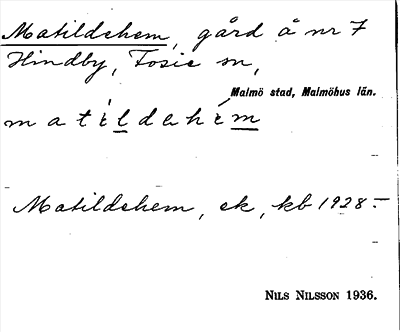 Matildehem, gård å nr 7
Hindby, Fosie sn,
Malmö stad, Malmöhus län.
matíldehém
Matildehem, ek, kb 1928 –
Nils Nilsson 1936.